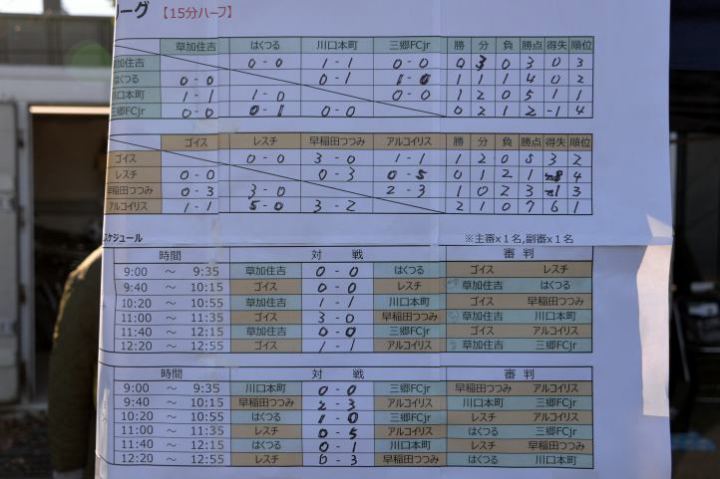 ーグ 【15分ハーフ】
草加住吉 はくつる 川口本町 三郷FCjr 勝 分 負 勝点 得失 順位
加住吉 0 - 0 1 - 1 0 - 0 0 3 0 3 0 3
はくつる 0 - 0 0 - 1 1 - 0 1 1 1 4 0 2
川口本町 1 - 1 1 - 0 0 - 0 1 2 0 5 1 1
三郷FCjr 0 - 0 0 - 1 0 - 0 0 2 1 2 -1 4
ゴイス レスチ 早稲田つつみ アルコイリス 勝 分 負 勝点 得失 順位
ゴイス 0 - 0 3 - 0 1 - 1 1 2 0 5 3 2
レスチ 0 - 0 0 - 3 0 - 5 0 1 2 1 -8 4
早稲田つつみ 0 - 3 3 - 0 2 - 3 1 0 2 3 -1 3
アルコイリス 1 - 1 5 - 0 3 - 2 2 1 0 7 6 1
スケジュール ※主審x1名,副審x1名
時間 対 戦 審 判
9:00 ～ 9:35 草加住吉 0 - 0 はくつる ゴイス レスチ
9:40 ～ 10:15 ゴイス 0 - 0 レスチ 草加住吉 はくつる
10:20 ～ 10:55 草加住吉 1 - 1 川口本町 ゴイス 早稲田つつみ
11:00 ～ 11:35 ゴイス 3 - 0 早稲田つつみ 草加住吉 川口本町
11:40 ～ 12:15 草加住吉 0 - 0 三郷FCjr ゴイス アルコイリス
12:20 ～ 12:55 ゴイス 1 - 1 アルコイリス 草加住吉 三郷FCjr
時間 対 戦 審 判
9:00 ～ 9:35 川口本町 0 - 0 三郷FCjr 早稲田つつみ アルコイリス
9:40 ～ 10:15 早稲田つつみ 2 - 3 アルコイリス 川口本町 三郷FCjr
10:20 ～ 10:55 はくつる 1 - 0 三郷FCjr レスチ アルコイリス
11:00 ～ 11:35 レスチ 0 - 5 アルコイリス はくつる 三郷FCjr
11:40 ～ 12:15 はくつる 0 - 1 川口本町 レスチ 早稲田つつみ
12:20 ～ 12:55 レスチ 0 - 3 早稲田つつみ はくつる 川口本町